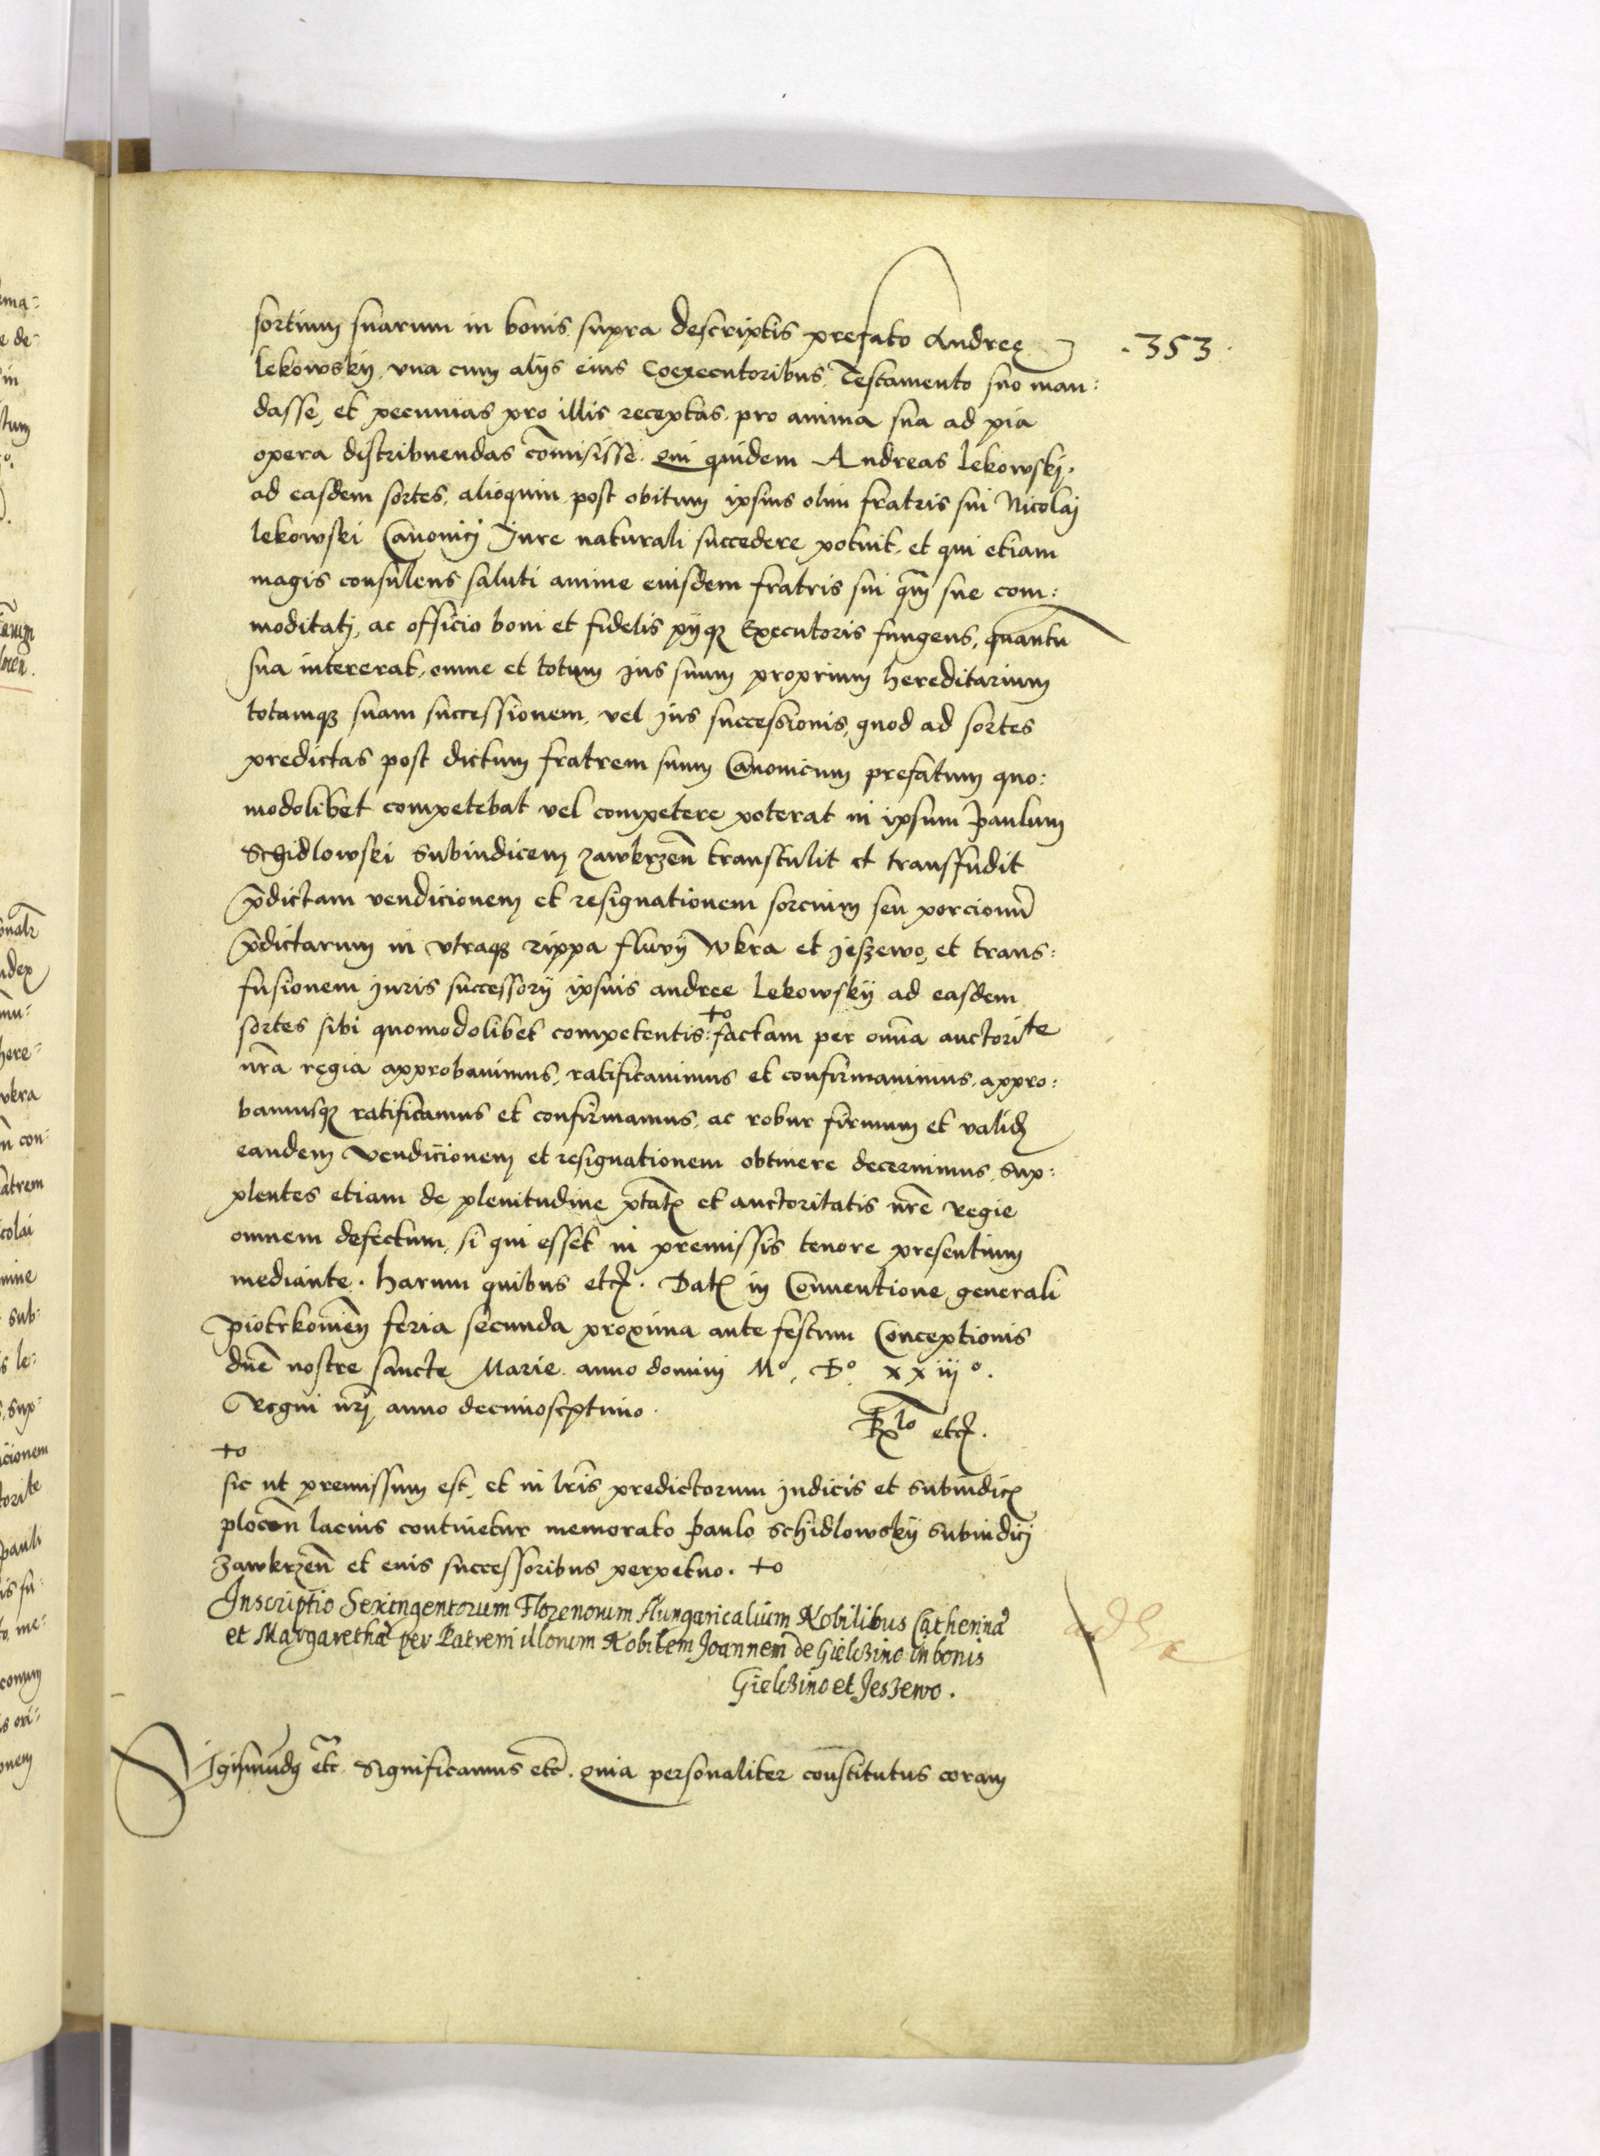 sortium suarum in bonis supra descriptis prefato Andreę
lekowskij vna cum alijs eius Coexecutoribus Testamento suo man:
dasse, et pecunias pro illis receptas pro anima sua ad pia
opera distribuendas cōmisisse. qui quidem Andreas lekowskj.
ad easdem sortes, alioquin post obitum ipsius olim fratris sui Nicolaj
lekowski Canonicj Jure naturali succedere potuit. et qui etiam
magis consulens saluti anime eiusdem fratris sui qm̄ sue com:
moditatj, ac officio boni et fidelis pijqz Executoris fungens, quantū
sua intererat, omne et totum ius suum proprium hereditarium
totamqz suam successionem, vel jus successionis, quod ad sortes
predictas post dictum fratrem suum Canonicum prefatum quo:
modolibet competebat vel competere poterat in ipsum Paulum
Schidlowski Subiudicem zawkrzen̄ transtulit et transfudit
p̄dictam vendicionem et resignationem sorcium seu porcionū
p̄dictarum in vtraqz rippa fluvij wkra et jeszewo, et trans:
fusionem juris successorij ipsius andree lekowskij ad easdem
sortes sibi quomodolibet competentis: +o factam per om̄ia auctorite
n̄ra regia approbauimus, ratificauimus et confirmauimus, appro:
bamusqz ratificamus et confirmamus, ac robur firmum et valid
eandem vendicionem et resignationem obtinere decernimus, sup:
plentes etiam de plenitudine ptāt et auctoritatis n̄re Regie
omnem defectum, si qui esset in premissis tenore presentium
mediante. harum quibus etc. Dat in Conuentione generali
piotrkouien̄ feria secunda proxima ante festum Conceptionis
dn̄e nostre sancte Marie anno dominj Mº. Dº. xxiijº.
Regni n̄rj anno decimoseptimo. Rlo etc.
+o
sic ut premissum est, et in lr̄is predictorum judicis et subiudic
plocen̄ lacius continetur memorato paulo schidlowskij subiudicj
zawkrzen̄ et eius successoribus perpetuo. +o
Inscriptio Sexingentorum Florenorum Hungaricalium Nobilibus Catherinæ
et Margarethæ per Patrem illorum Nobilem Joannem de Gielczino in bonis
Gielczino et Jeszewo.
Sigismūdq etc. Significamus etc. quia personaliter constitutus coram
.353.